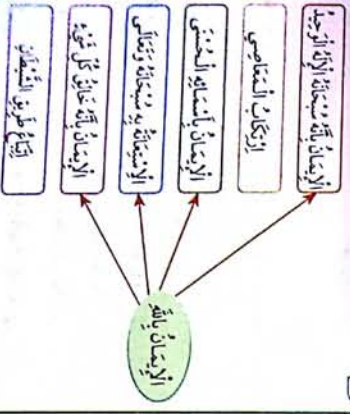 الْإِيمَانُ بِاللهِ
الْإِيمَانُ بِأَنَّهُ سُبْحَانَهُ الْإِلَهُ الْوَحِيدُ
ارْتِكَابُ الْمَعَاصِي
الْإِيمَانُ بِأَسْمَائِهِ الْحُسْنَى
الْاِسْتِعَانَةُ بِهِ سُبْحَانَهُ وَتَعَالَى
الْإِيمَانُ بِأَنَّهُ خَالِقُ كُلِّ شَيْءٍ
اتِّبَاعُ طَرِيقِ الشَّيْطَانِ